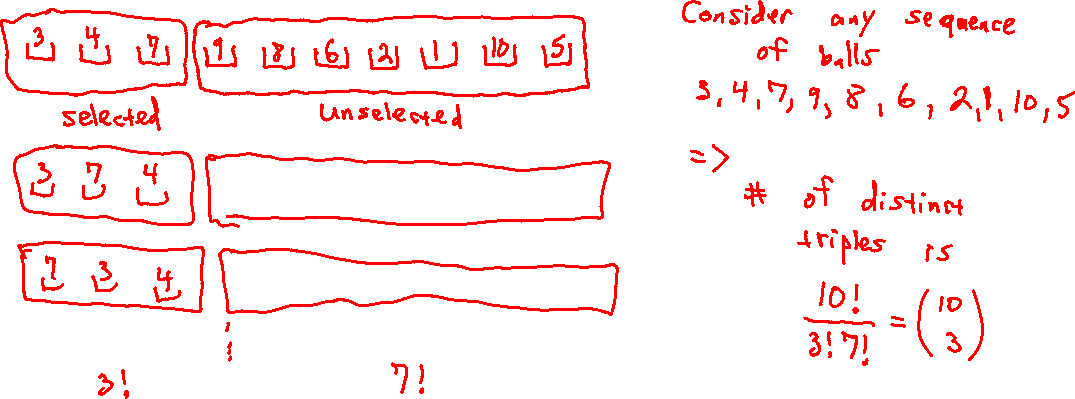 3 4 7 9 8 6 2 1 10 5
selected unselected
3 7 4
7 3 4
3! 7!
Consider any sequence
of balls
3, 4, 7, 9, 8, 6, 2, 1, 10, 5
=>
# of distinct
triples is
10!/3!7! = (10 3)